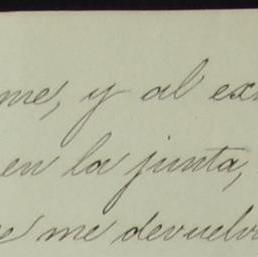 me, y al ex
en la junta,
e me devuelv